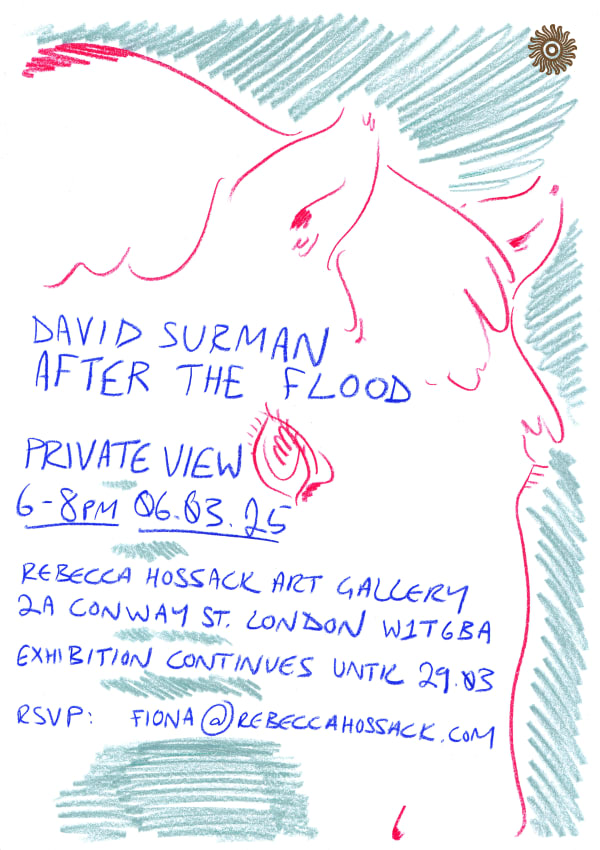 DAVID SURMAN
AFTER THE FLOOD
PRIVATE VIEW
6-8PM 06.03.25
REBECCA HOSSACK ART GALLERY
2A CONWAY ST. LONDON W1T6BA
EXHIBITION CONTINUES UNTIL 29.03
RSVP: FIONA@REBECCAHOSSACK.COM